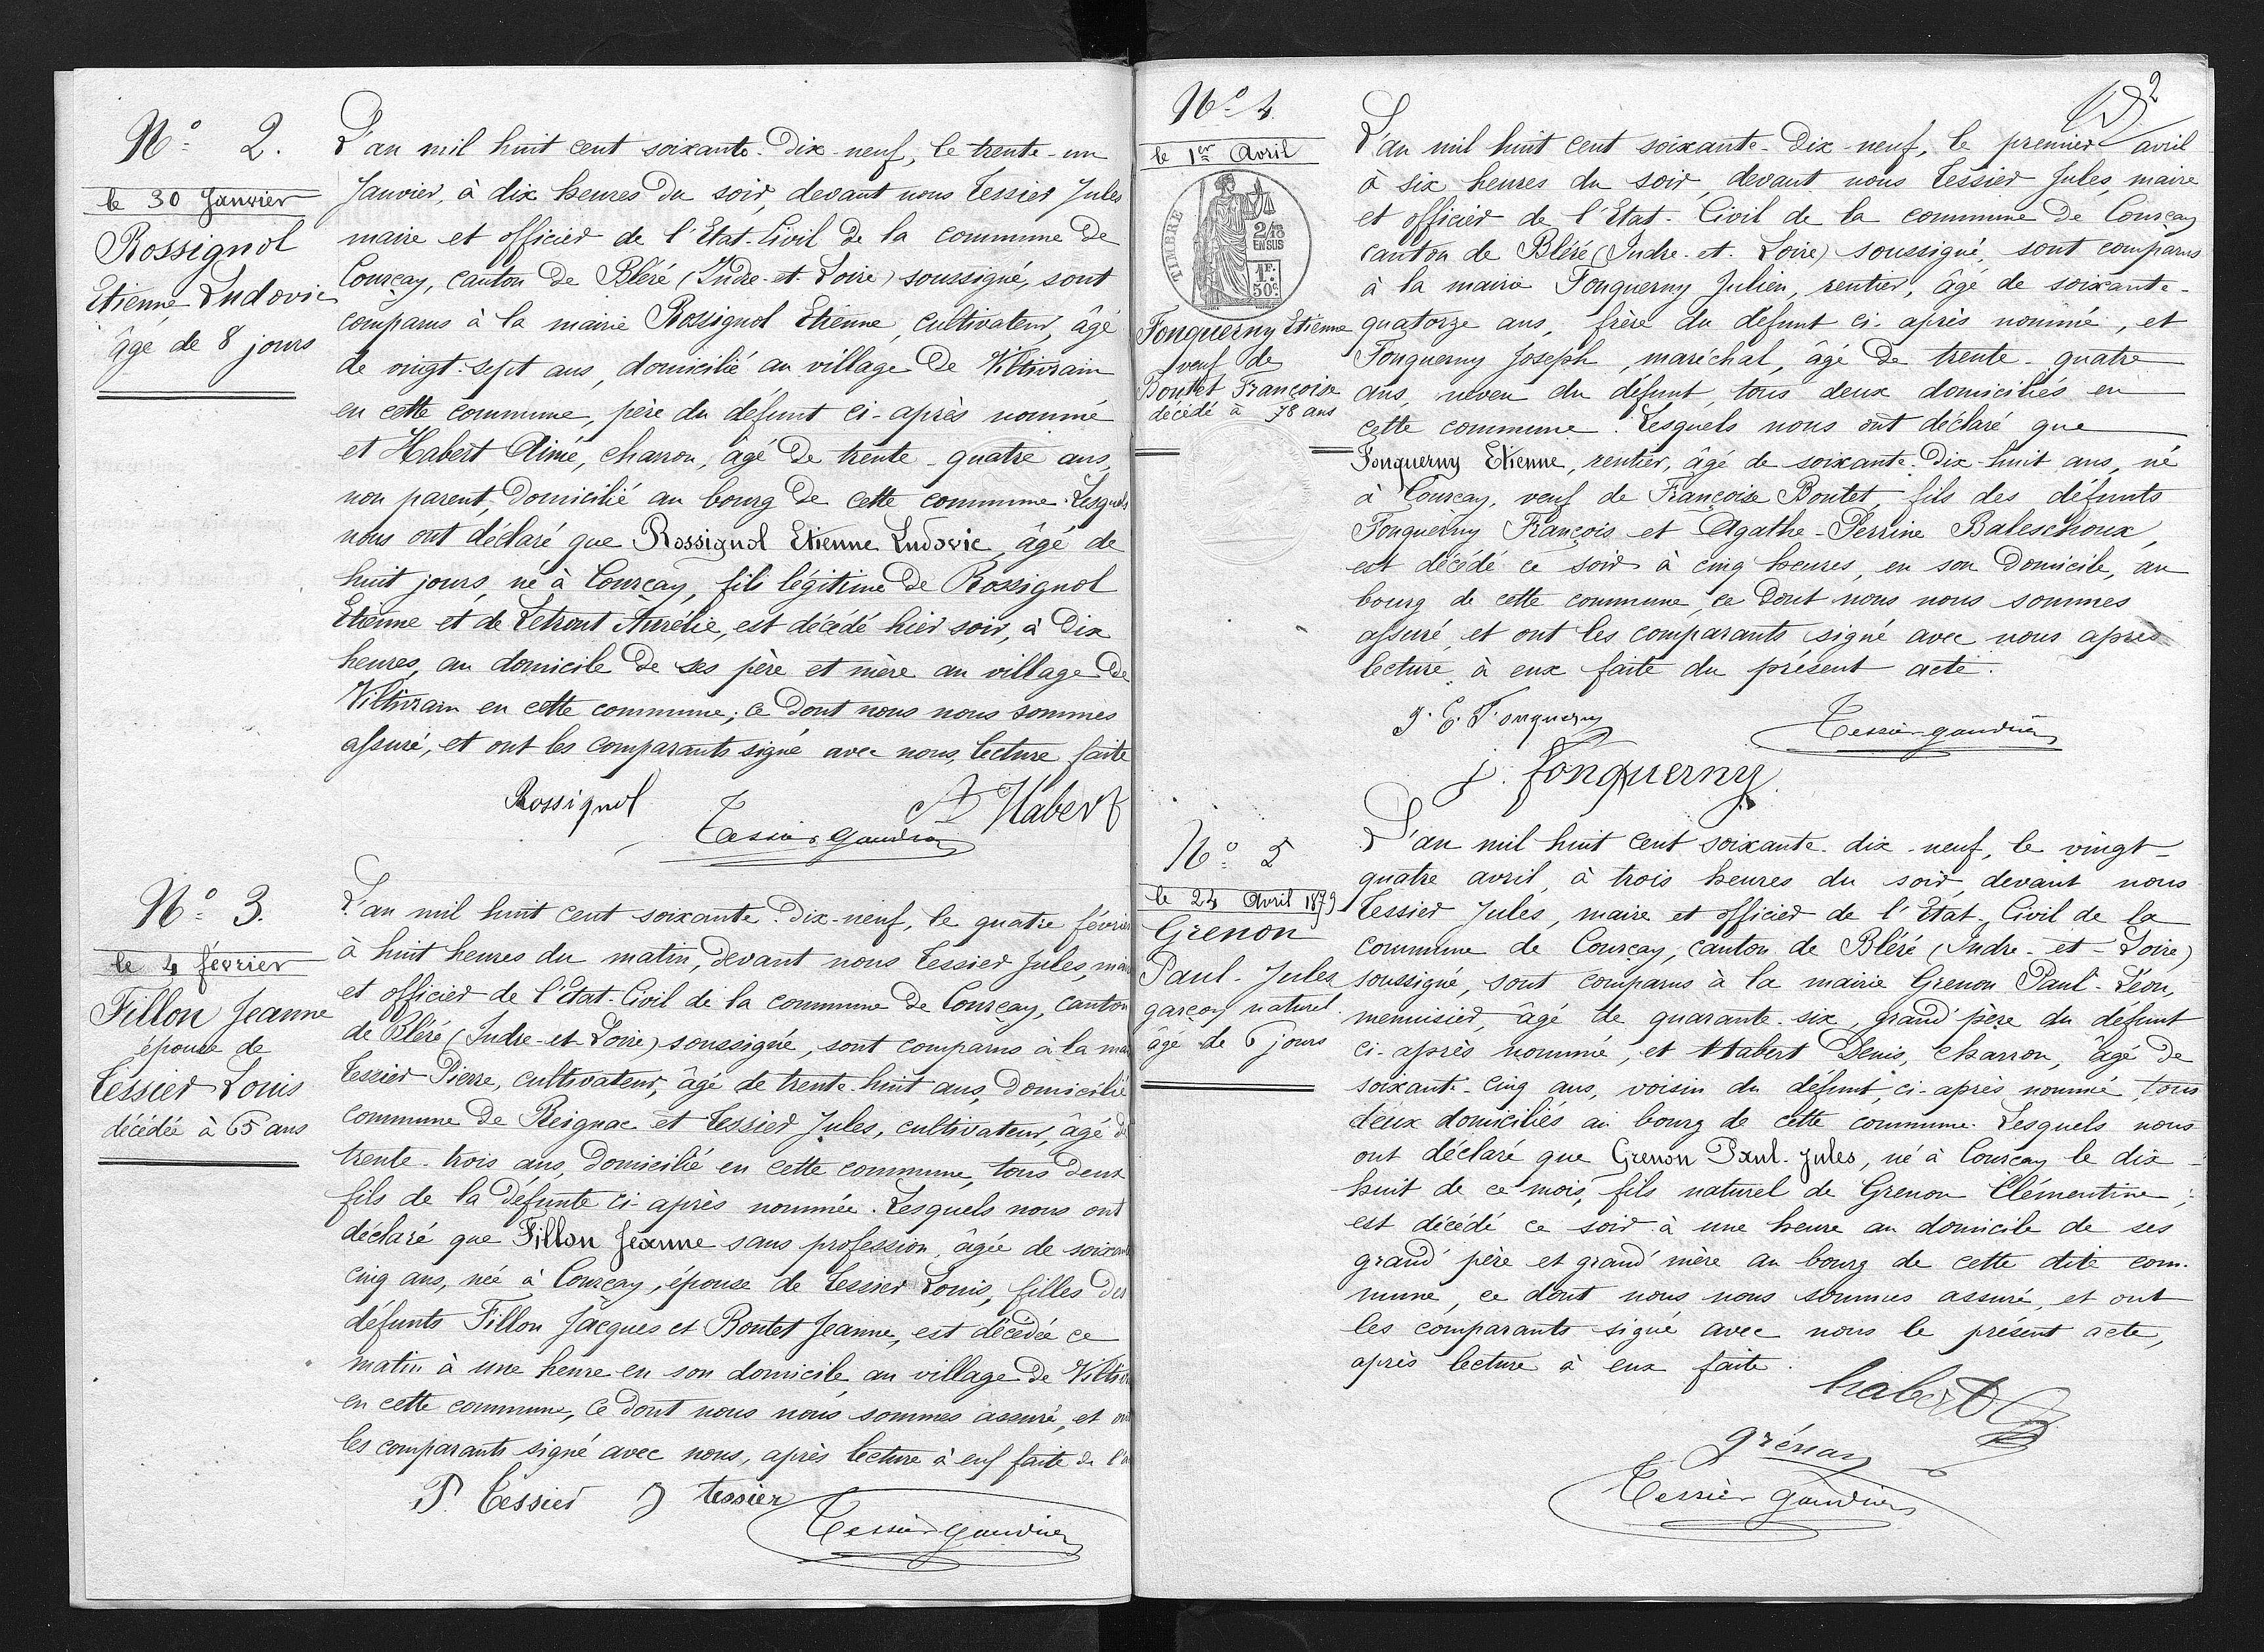 Nº 2.
le 30 Janvier
Rossignol
Etienne Ludovic
âgé de 8 jours
L'an mil huit cent soixante-dix-neuf, le trente-un
Janvier, à dix heures du soir, devant nous Tessier Jules
maire et officier de l'Etat-Civil de la commune de
Courçay, canton de Bléré (Indre-et-Loire) soussigné, sont
comparus à la mairie Rossignol Etienne, cultivateur, âgé
de vingt-sept ans, domicilié au village de Viltivrain
en cette commune, père du défunt ci-après nommé
et Habert Aimé, charron, âgé de trente-quatre ans,
non parent, domicilié au bourg de cette commune. Lesquels
nous ont déclaré que Rossignol Etienne Ludovic, âgé de
huit jours, né à Courçay, fils légitime de Rossignol
Etienne et de Letrout Aurélie, est décédé hier soir, à dix
heures, au domicile de ses père et mère au village de
Viltivrain en cette commune; ce dont nous nous sommes
assuré, et ont les comparants signé avec nous, lecture faite
Rossignol
A Habert
Tessier Gaudion
Nº 3.
le 4 février
Fillon Jeanne
épouse de
Tessier Louis
décédée à 65 ans
L'an mil huit cent soixante-dix-neuf, le quatre février
à huit heures du matin, devant nous Tessier Jules, mai
et officier de l'Etat-Civil de la commune de Courçay, canton
de Bléré (Indre-et-Loire) soussigné, sont comparus à la mai
Tessier Pierre, cultivateur, âgé de trente-huit ans, domicilié
commune de Reignac et Tessier Jules, cultivateur, âgé de
trente-trois ans, domicilié en cette commune, tous deux
fils de la défunte ci-après nommée. Lesquels nous ont
déclaré que Fillon Jeanne sans profession, âgée de soixante
cinq ans, née à Courçay, épouse de Tessier Louis, filles des
défunts Fillon Jacques et Boutet Jeanne, est décédée ce
matin à une heure en son domicile au village de Viltiv
en cette commune, ce dont nous nous sommes assuré, et ont
les comparants signé avec nous, après lecture à eux faite de l'a
P. Tessier J tessier
Tessier Gaudion
2
Nº 4
le 1er Avril
TIMBRE
2/10
EN SUS
1F.
50c.
Fonquerny Etienne
veuf de
Boutet Françoise
décédé à 78 ans
L'an mil huit cent soixante-dix-neuf, le premier avril
à six heures du soir, devant nous Tessier Jules, maire
et officier de l'Etat-Civil de la commune de Courçay
canton de Bléré (Indre-et-Loire) soussigné, sont comparus
à la mairie Fonquerny Julien, rentier, âgé de soixante-
quatorze ans, frère du défunt ci-après nommé, et
Fonquerny Joseph, maréchal, âgé de trente-quatre
ans, neveu du défunt, tous deux domiciliés en
cette commune. Lesquels nous ont déclaré que
Fonquerny Etienne, rentier, âgé de soixante-dix-huit ans, né
à Courçay, veuf de Françoise Boutet, fils des défunts
Fonquerny François et Agathe-Perrine Baleschoux,
est décédé ce soir à cinq heures, en son domicile, au
bourg de cette commune, ce dont nous nous sommes
assuré, et ont les comparants signé avec nous après
lecture à eux faite du présent acte.
J. E. Fonquerny
Tessier-Gaudion
j. fonquerny
Nº 5
le 24 Avril 1879
Grenon
Paul-Jules
garçon naturel
âgé de 6 jours
L'an mil huit cent soixante-dix-neuf, le vingt-
quatre avril, à trois heures du soir, devant nous
Tessier Jules, maire et officier de l'Etat-Civil de la
commune de Courçay, canton de Bléré (Indre-et-Loire)
soussigné, sont comparus à la mairie Grenon Paul-Léon,
menuisier, âgé de quarante-six, grand'père du défunt
ci-après nommé, et Habert Denis, charron, âgé de
soixante-cinq ans, voisin du défunt, ci-après nommé, tous
deux domiciliés au bourg de cette commune. Lesquels nous
ont déclaré que Grenon Paul-Jules, né à Courçay le dix-
huit de ce mois, fils naturel de Grenon Clémentine;
est décédé ce soir à une heure au domicile de ses
grand'père et grand'mère au bourg de cette dite com-
mune, ce dont nous nous sommes assuré, et ont
les comparants signé avec nous le présent acte,
après lecture à eux faite.
habert D
grénon
Tessier Gaudion